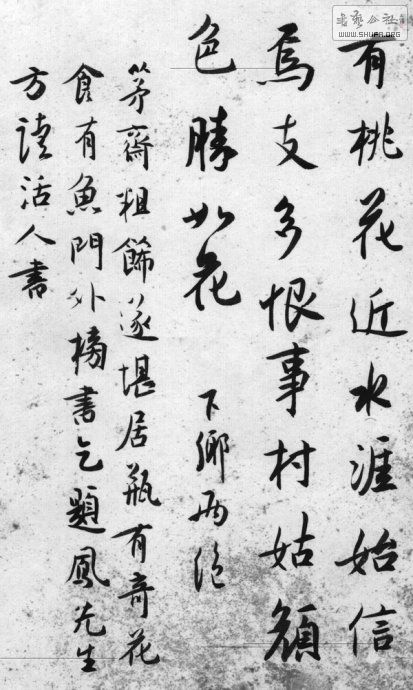 有桃花近水涯始信
焉支多恨事村姑顏
色勝如花
下鄉兩絕
茅齋粗飾遂堪居瓶有奇花
食有魚門外榜書乞題鳳先生
方讀活人書
書藝公社
WWW.SHUFA.ORG